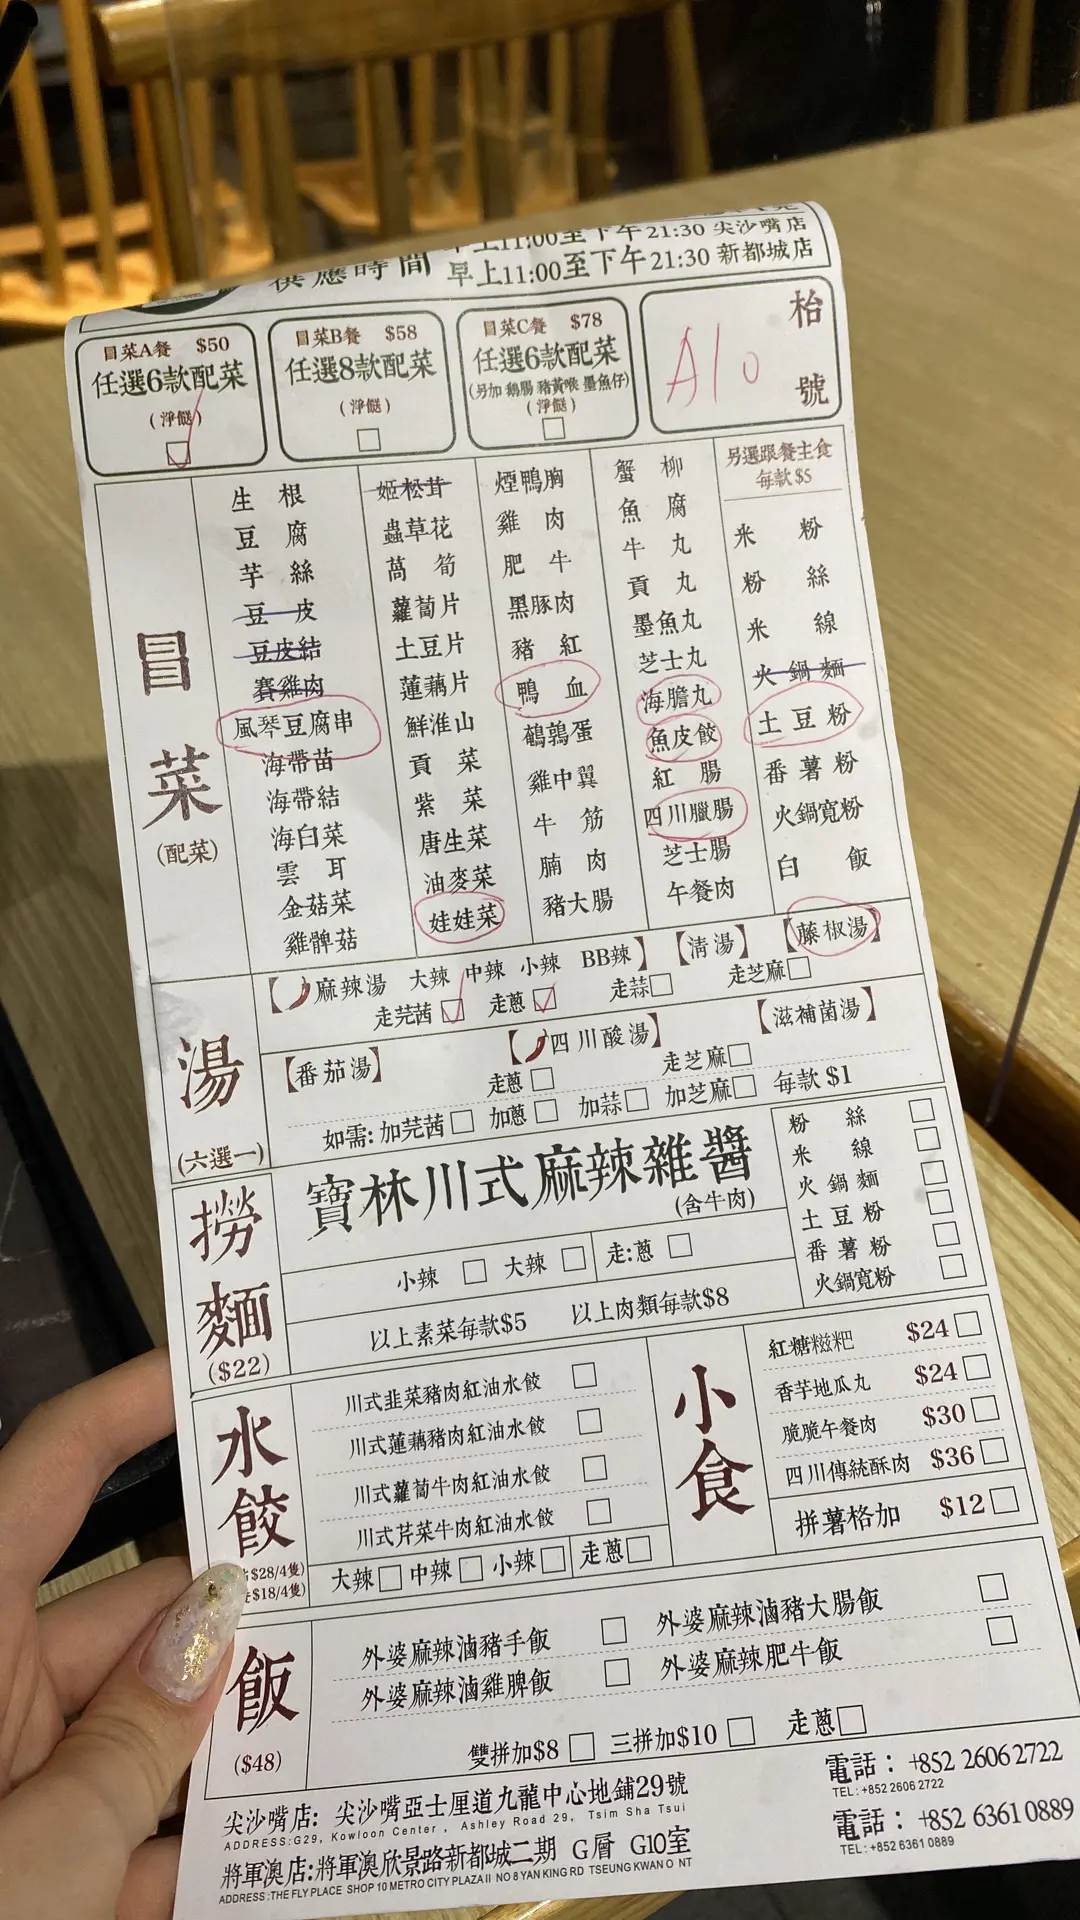 早上11:00至下午21:30 尖沙嘴店
供應時間 早上11:00至下午21:30 新都城店
冒菜A餐 $50
任選6款配菜
(淨餸)
冒菜B餐 $58
任選8款配菜
(淨餸)
冒菜C餐 $78
任選6款配菜
(另加 鵝腸 豬黃喉 墨魚仔)
(淨餸)
枱號
A10
冒菜
(配菜)
生根
豆腐
芋絲
豆皮
豆皮結
賽雞肉
風琴豆腐串
海帶苗
海帶結
海白菜
雲耳
金菇菜
雞髀菇
姬松茸
蟲草花
萵筍
蘿蔔片
土豆片
蓮藕片
鮮淮山
貢菜
紫菜
唐生菜
油麥菜
娃娃菜
煙鴨胸
雞肉
肥牛
黑豚肉
豬紅
鴨血
鵪鶉蛋
雞中翼
牛筋
腩肉
豬大腸
蟹柳
魚腐
牛丸
貢丸
墨魚丸
芝士丸
海膽丸
魚皮餃
紅腸
四川臘腸
芝士腸
午餐肉
另選跟餐主食
每款$5
米粉
粉絲
米線
火鍋麵
土豆粉
番薯粉
火鍋寬粉
白飯
湯
(六選一)
【麻辣湯 大辣 中辣 小辣 BB辣】 【清湯】 【藤椒湯】
走芫茜 走蔥 走蒜 走芝麻
【番茄湯】 【四川酸湯】 【滋補菌湯】
走蔥 走芝麻
如需: 加芫茜 加蔥 加蒜 加芝麻 每款 $1
撈麵
($22)
寶林川式麻辣雜醬
(含牛肉)
小辣 大辣 走:蔥
以上素菜每款$5 以上肉類每款$8
粉絲
米線
火鍋麵
土豆粉
番薯粉
火鍋寬粉
水餃
$28/4隻)
$18/4隻)
川式韭菜豬肉紅油水餃
川式蓮藕豬肉紅油水餃
川式蘿蔔牛肉紅油水餃
川式芹菜牛肉紅油水餃
大辣 中辣 小辣 走蔥
小食
紅糖糍粑 $24
香芋地瓜丸 $24
脆脆午餐肉 $30
四川傳統酥肉 $36
拼薯格加 $12
飯
($48)
外婆麻辣滷豬手飯 外婆麻辣滷豬大腸飯
外婆麻辣滷雞脾飯 外婆麻辣肥牛飯
雙拼加$8 三拼加$10 走蔥
尖沙嘴店: 尖沙嘴亞士厘道九龍中心地鋪29號 電話: +852 2606 2722
ADDRESS:G29, Kowloon Center, Ashley Road 29, Tsim Sha Tsui TEL: +852 2606 2722
將軍澳店:將軍澳欣景路新都城二期 G層 G10室 電話: +852 6361 0889
ADDRESS :THE FLY PLACE SHOP 10 METRO CITY PLAZA II NO 8 YAN KING RD TSEUNG KWAN O NT TEL: +852 6361 0889